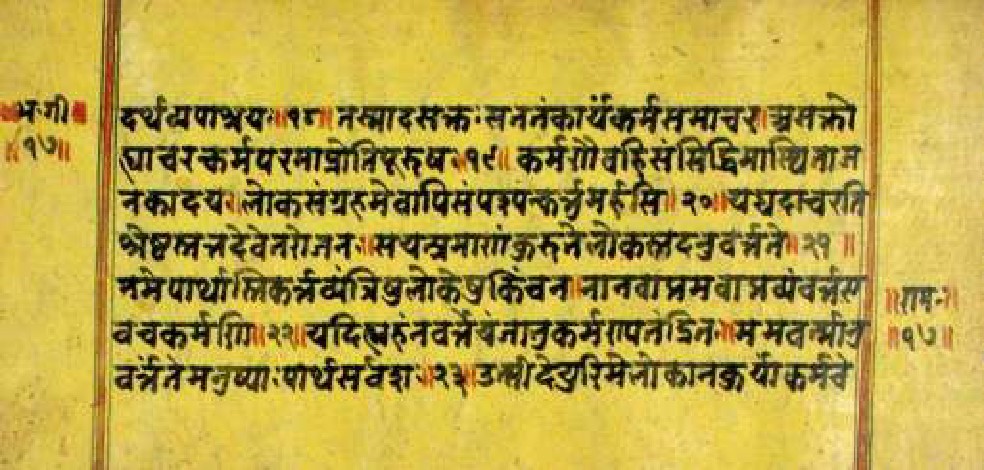 भ·गी
॥१७॥
दर्थव्यपाश्रयः॥१८॥तस्मादसक्तः सततंकार्यंकर्मसमाचर॥असक्तो
ह्याचरन्कर्मपरमाप्नोतिपूरुषः॥१९॥कर्मणैवहिसंसिद्धिमास्थिताज
नकादयः॥लोकसंग्रहमेवापिसंपश्यन्कर्त्तुमर्हसि॥२०॥यद्यदाचरति
श्रेष्ठस्तत्तदेवेतरोजनः॥सयत्प्रमाणंकुरुतेलोकस्तदनुवर्त्तते॥२१॥
नमेपार्थास्तिकर्त्तव्यंत्रिषुलोकेषुकिंचन॥नानवाप्तमवाप्तव्यंवर्त्तए
वचकर्मणि॥२२॥यदिह्यहंनवर्त्तेयंजातुकर्मण्यतंद्रितः॥ममवर्त्मानु
वर्त्तंतेमनुष्याःपार्थसर्वशः॥२३॥उत्सीदेयुरिमेलोकानकुर्यांकर्मचे
॥राम·॥
॥१७॥